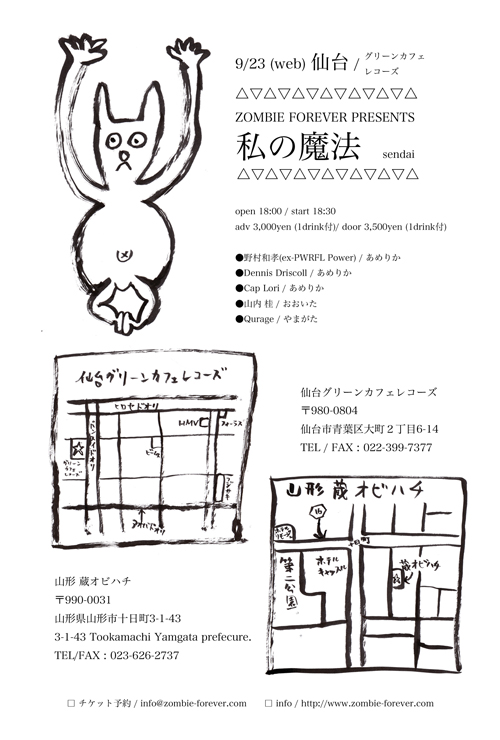 9/23 (web) 仙台 / グリーンカフェ
レコーズ
△▽△▽△▽△▽△▽△▽△
ZOMBIE FOREVER PRESENTS
私の魔法 sendai
△▽△▽△▽△▽△▽△▽△
open 18:00 / start 18:30
adv 3,000yen (1drink付)/ door 3,500yen (1drink付)
●野村和孝(ex-PWRFL Power) / あめりか
●Dennis Driscoll / あめりか
●Cap Lori / あめりか
●山内 桂 / おおいた
●Qurage / やまがた
仙台グリーンカフェレコーズ
ヒロセドオリ
HMV
フォーラス
ビブレ
フジサキ
アオバドオリ
仙台グリーンカフェレコーズ
〒980-0804
仙台市青葉区大町２丁目6-14
TEL / FAX：022-399-7377
山形 蔵オビハチ
十日町
第二公園
ホテル
キャッスル
蔵オビハチ
山形 蔵オビハチ
〒990-0031
山形県山形市十日町3-1-43
3-1-43 Tookamachi Yamgata prefecure.
TEL/FAX：023-626-2737
□ チケット予約 / info@zombie-forever.com □ info / http://www.zombie-forever.com